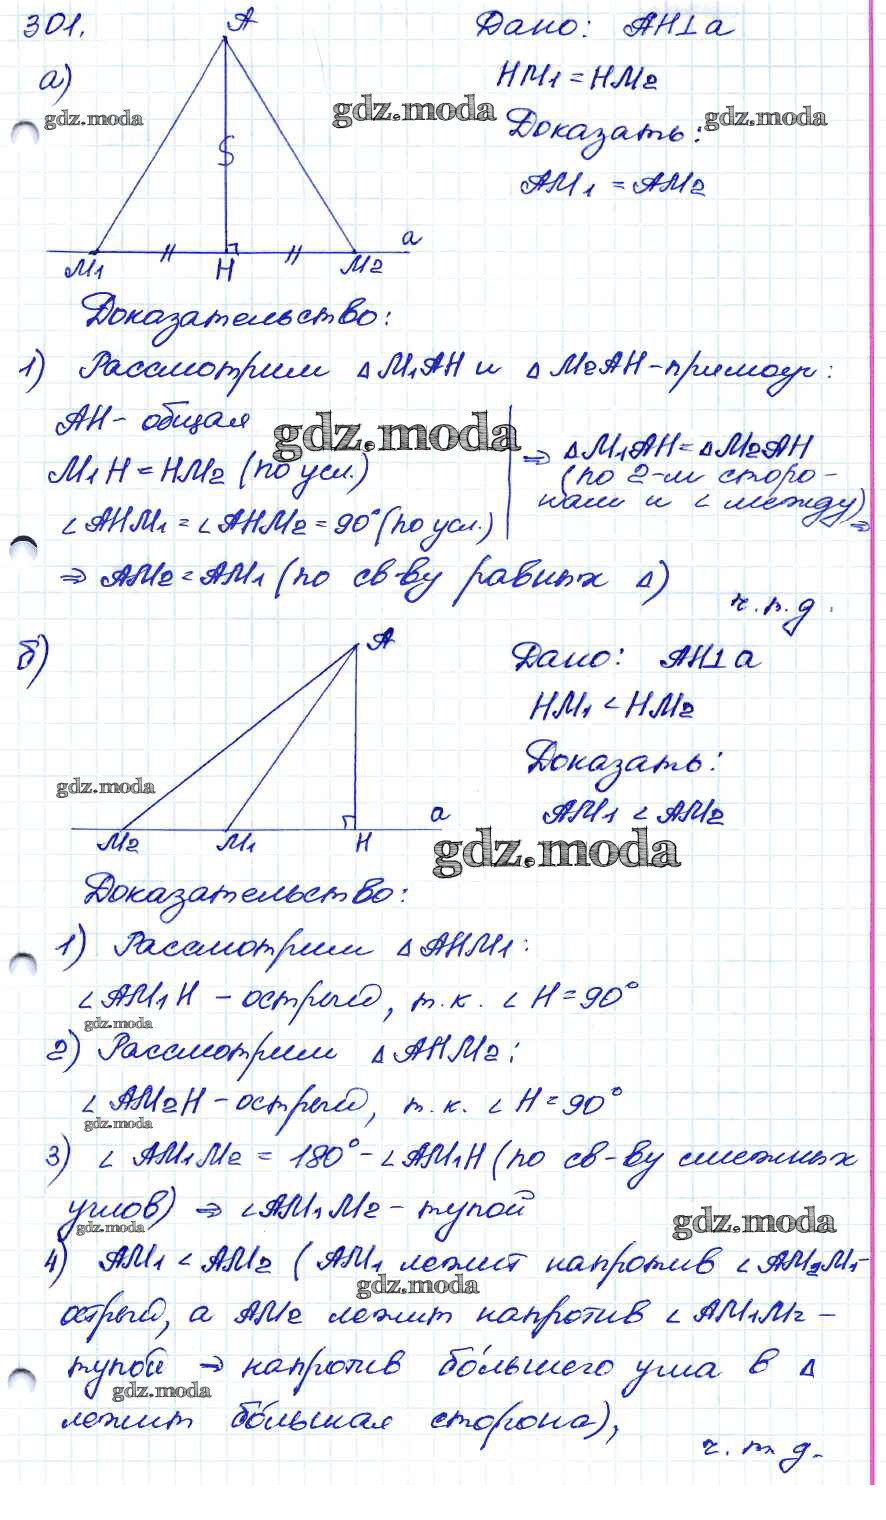 301.
а)
A
S
M1
H
M2
a
Дано: AH⊥a
HM1 = HM2
Доказать:
AM1 = AM2
gdz.moda
gdz.moda
gdz.moda
Доказательство:
1) Рассмотрим Δ M1AH и Δ M2AH - прямоуг:
AH - общая
M1H = HM2 (по усл.)
∠AHM1 = ∠AHM2 = 90° (по усл.)
⇒ ΔM1AH = ΔM2AH
(по 2-м сторо-
нами и ∠ между) ⇒
gdz.moda
⇒ AM2 = AM1 (по св-ву равных Δ)
ч.т.д.
б)
A
M2
M1
H
a
Дано: AH⊥a
HM1 < HM2
Доказать:
AM1 < AM2
gdz.moda
gdz.moda
Доказательство:
1) Рассмотрим ΔAHM1:
∠AM1H - острый, т.к. ∠H = 90°
gdz.moda
2) Рассмотрим ΔAHM2:
∠AM2H - острый, т.к. ∠H = 90°
gdz.moda
3) ∠AM1M2 = 180° - ∠AM1H (по св-ву смежных
углов) ⇒ ∠AM1M2 - тупой
gdz.moda
gdz.moda
4) AM1 < AM2 (AM1 лежит напротив ∠AM2M1-
gdz.moda
острый, а AM2 лежит напротив ∠AM1M2 -
тупой ⇒ напротив бо́льшего угла в Δ
gdz.moda
лежит бо́льшая сторона),
ч.т.д.